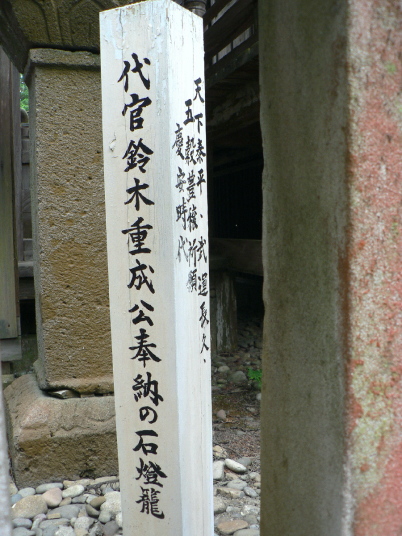 代官鈴木重成公奉納の石燈籠
天下泰平、武運長久、
五穀豊穣祈願
慶安時代